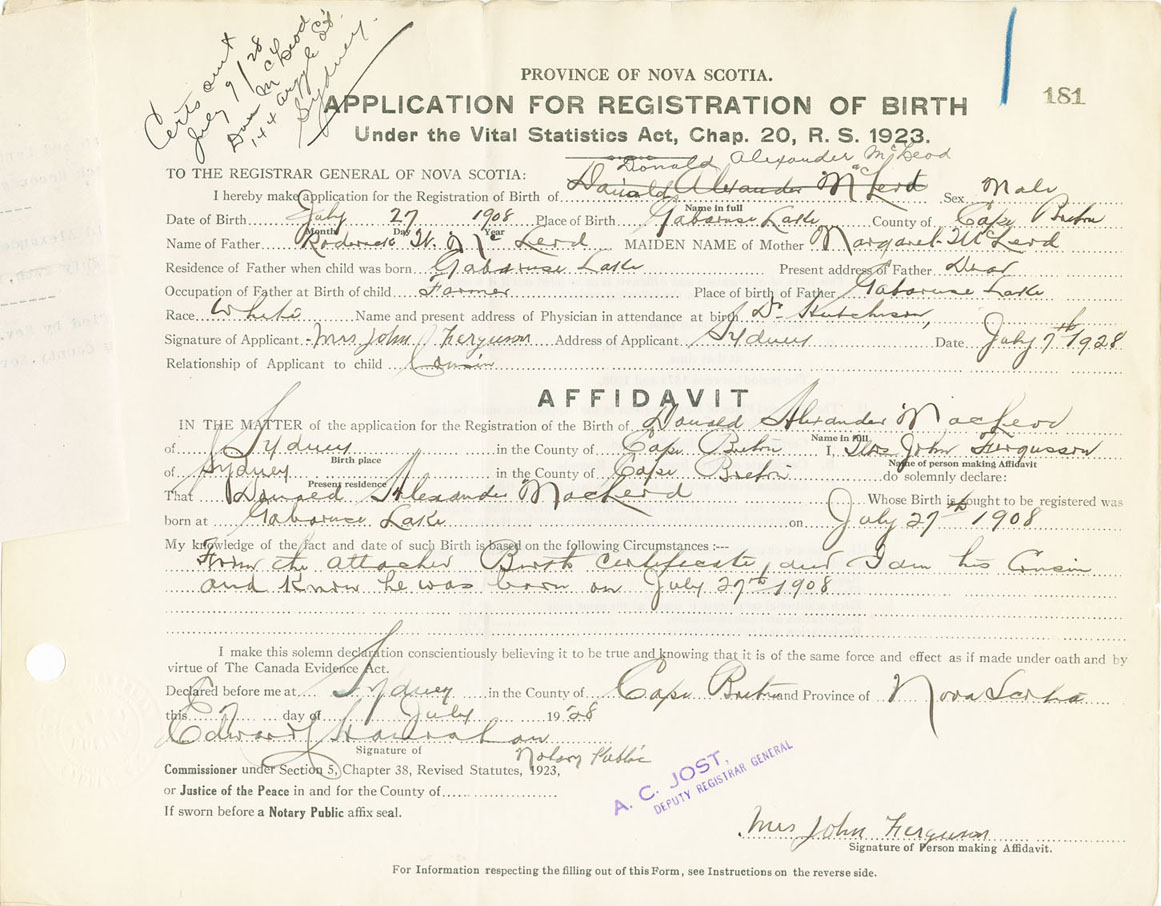 Certs sent
July 9/28
Dan McLeod
144 Argyle St.
Sydney.
PROVINCE OF NOVA SCOTIA.
181
APPLICATION FOR REGISTRATION OF BIRTH
Under the Vital Statistics Act, Chap. 20, R. S. 1923.
Donald Alexander McLeod
TO THE REGISTRAR GENERAL OF NOVA SCOTIA:
I hereby make application for the Registration of Birth of Daniel Alexander McLeod Sex Male
Name in full
Date of Birth July 27 1908 Place of Birth Gabarus Lake County of Cape Breton
Month Day Year
Name of Father Roderick W. McLeod MAIDEN NAME of Mother Margaret McLeod
Residence of Father when child was born Gabaruse Lake Present address of Father Dead
Occupation of Father at Birth of child Farmer Place of birth of Father Gabaruse Lake
Race White Name and present address of Physician in attendance at birth Dr Hutchison,
Signature of Applicant Mrs John Ferguson Address of Applicant Sydney Date July 7th 1928
Relationship of Applicant to child Cousin
AFFIDAVIT
IN THE MATTER of the application for the Registration of the Birth of Donald Alexander MacLeod
Name in full
of Sydney in the County of Cape Breton I, Mrs John Fergusson
Birth place
Name of person making Affidavit
of Sydney in the County of Cape Breton do solemnly declare:
Present residence
That Donald Alexander MacLeod Whose Birth is sought to be registered was
born at Gabaruse Lake on July 27th 1908
My knowledge of the fact and date of such Birth is based on the following Circumstances :—
From the attached Birth certificate, and I am his Cousin
and know he was born on July 27th 1908
I make this solemn declaration conscientiously believing it to be true and knowing that it is of the same force and effect as if made under oath and by
virtue of The Canada Evidence Act.
Declared before me at Sydney in the County of Cape Breton and Province of Nova Scotia
this 7 day of July 1928
Edward Hanrahan
Signature of
Notary Public
Commissioner under Section 5, Chapter 38, Revised Statutes, 1923,
or Justice of the Peace in and for the County of
If sworn before a Notary Public affix seal.
A. C. JOST,
DEPUTY REGISTRAR GENERAL
Mrs John Ferguson
Signature of Person making Affidavit.
For Information respecting the filling out of this Form, see Instructions on the reverse side.